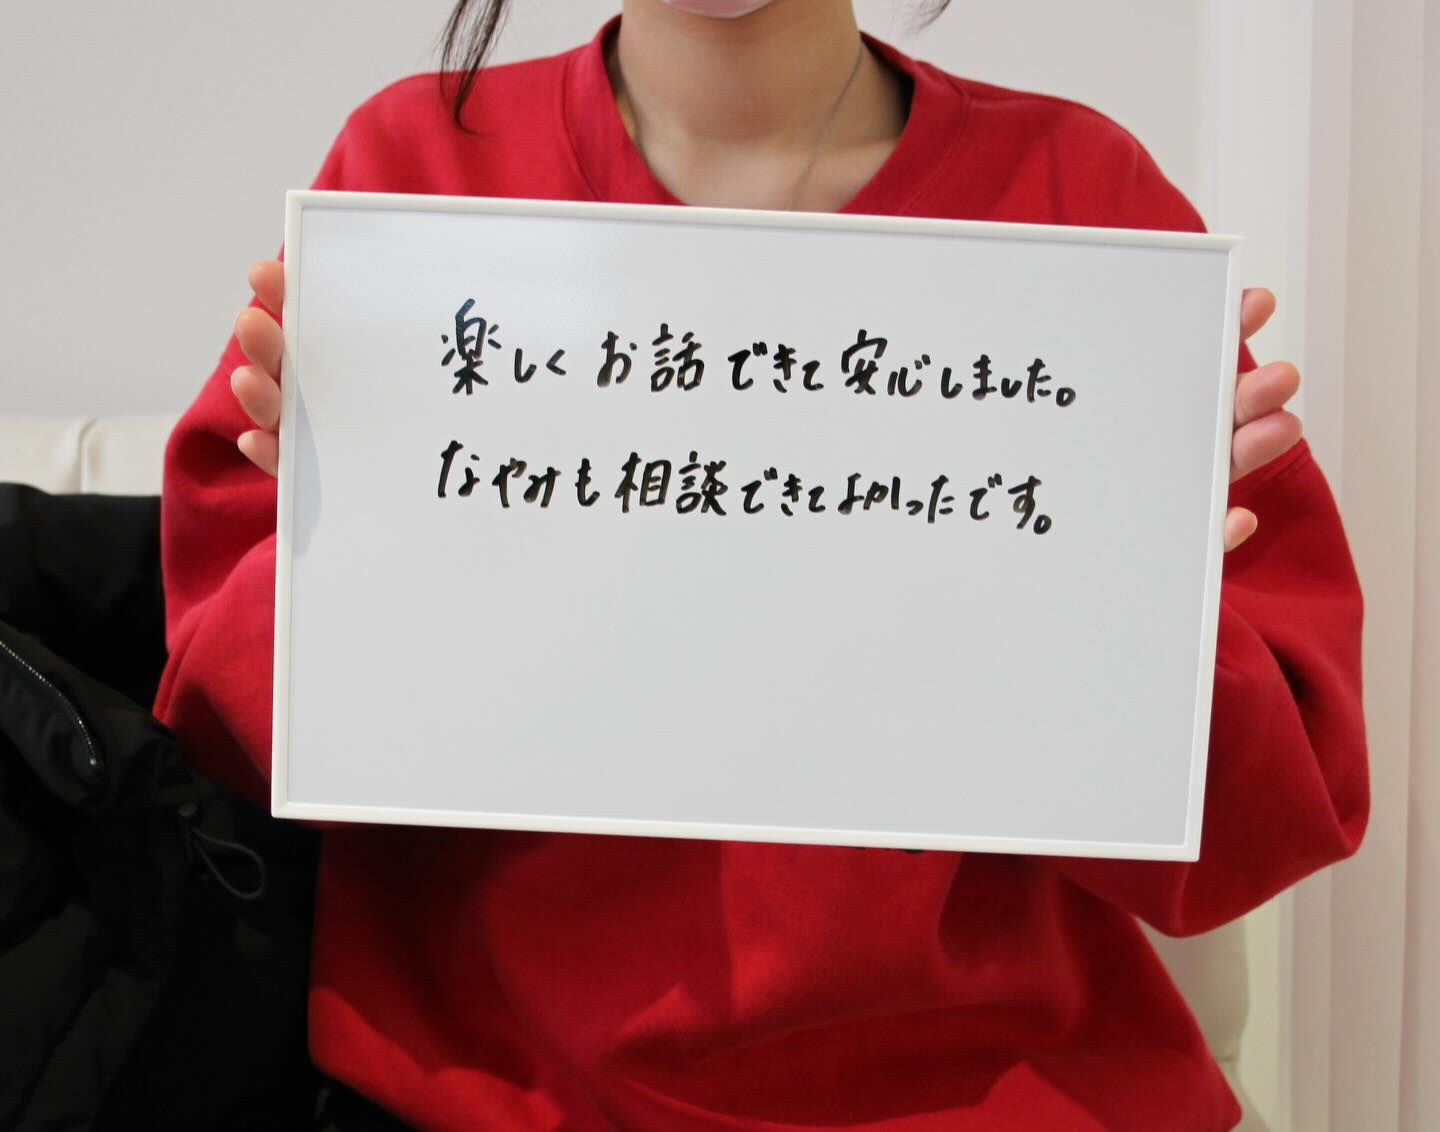 楽しくお話できて安心しました。
なやみも相談できてよかったです。